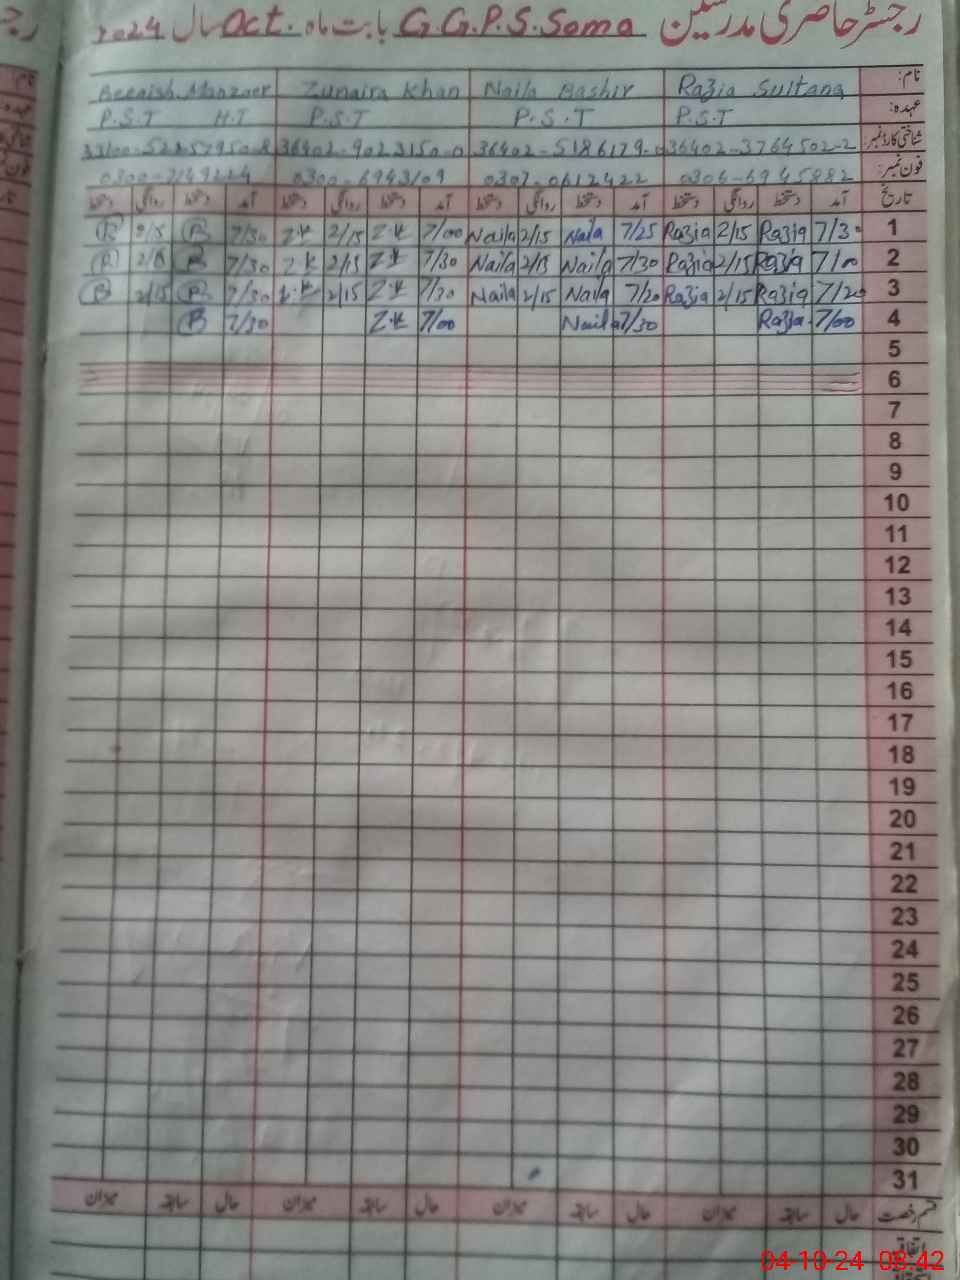 رجسٹر حاضری مدرسین G.G.P.S. Soma بابت ماہ Oct. سال 2024
نام: Razia Sultana Naila Bashir Zunaira Khan
عہدہ: P.S.T P.S.T P.S.T P.S.T H.T
شناختی کارڈ نمبر: 36402-3764502-2
فون نمبر: 0307-0612422 0300-6943109
تاریخ آمد دستخط روانگی دستخط آمد دستخط روانگی دستخط آمد دستخط روانگی دستخط آمد دستخط روانگی دستخط
1 7/30 Razia 2/15 Razia 7/25 Naila 2/15 Naila 7/00 Z.K 2/15 Z.K 7/30 B 2/15 B
2 7/00 Razia 2/15 Razia 7/30 Naila 2/15 Naila 7/30 Z.K 2/15 Z.K 7/30 B B
3 7/20 Razia 2/15 Razia 7/20 Naila 2/15 Naila 7/30 Z.K 2/15 Z.K 7/30 B 2/15 B
4 7/00 Razia 7/30 Naila 7/00 Z.K 7/30 B
5
6
7
8
9
10
11
12
13
14
15
16
17
18
19
20
21
22
23
24
25
26
27
28
29
30
31
قسم رخصت حال سابقہ میزان حال سابقہ میزان حال سابقہ میزان حال سابقہ میزان
اتفاقیہ
04-10-24 08:42